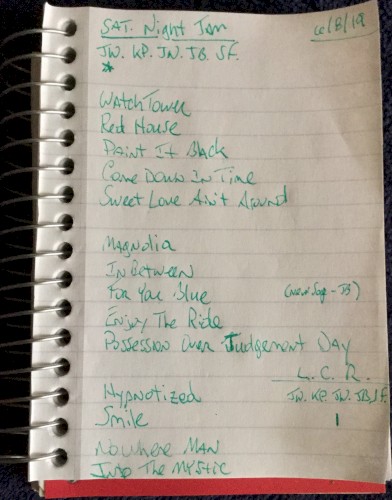 SAT. Night Jam 6/8/19
JW. KP. JN. JB. SF.
*
WatchTower
Red House
Paint It Black
Come Down In Time
Sweet Love Ain't Around
Magnolia
In Between
For You Blue
Enjoy The Ride
Possession Over Judgement Day
L. C. R.
Hypnotized JW. KP. JN. JB. SF.
Smile 1
Nowhere Man
Into The Mystic